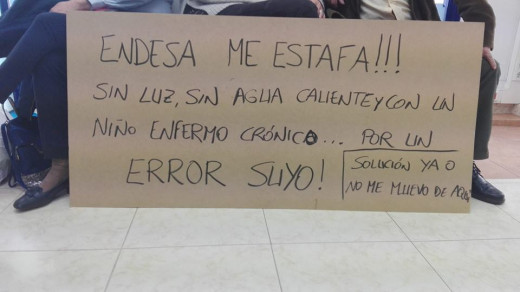 ENDESA ME ESTAFA!!!
SIN LUZ, SIN AGUA CALIENTE Y CON UN
NIÑO ENFERMO CRÓNICO... POR UN
ERROR SUYO!
SOLUCIÓN YA O
NO ME MUEVO DE AQUÍ